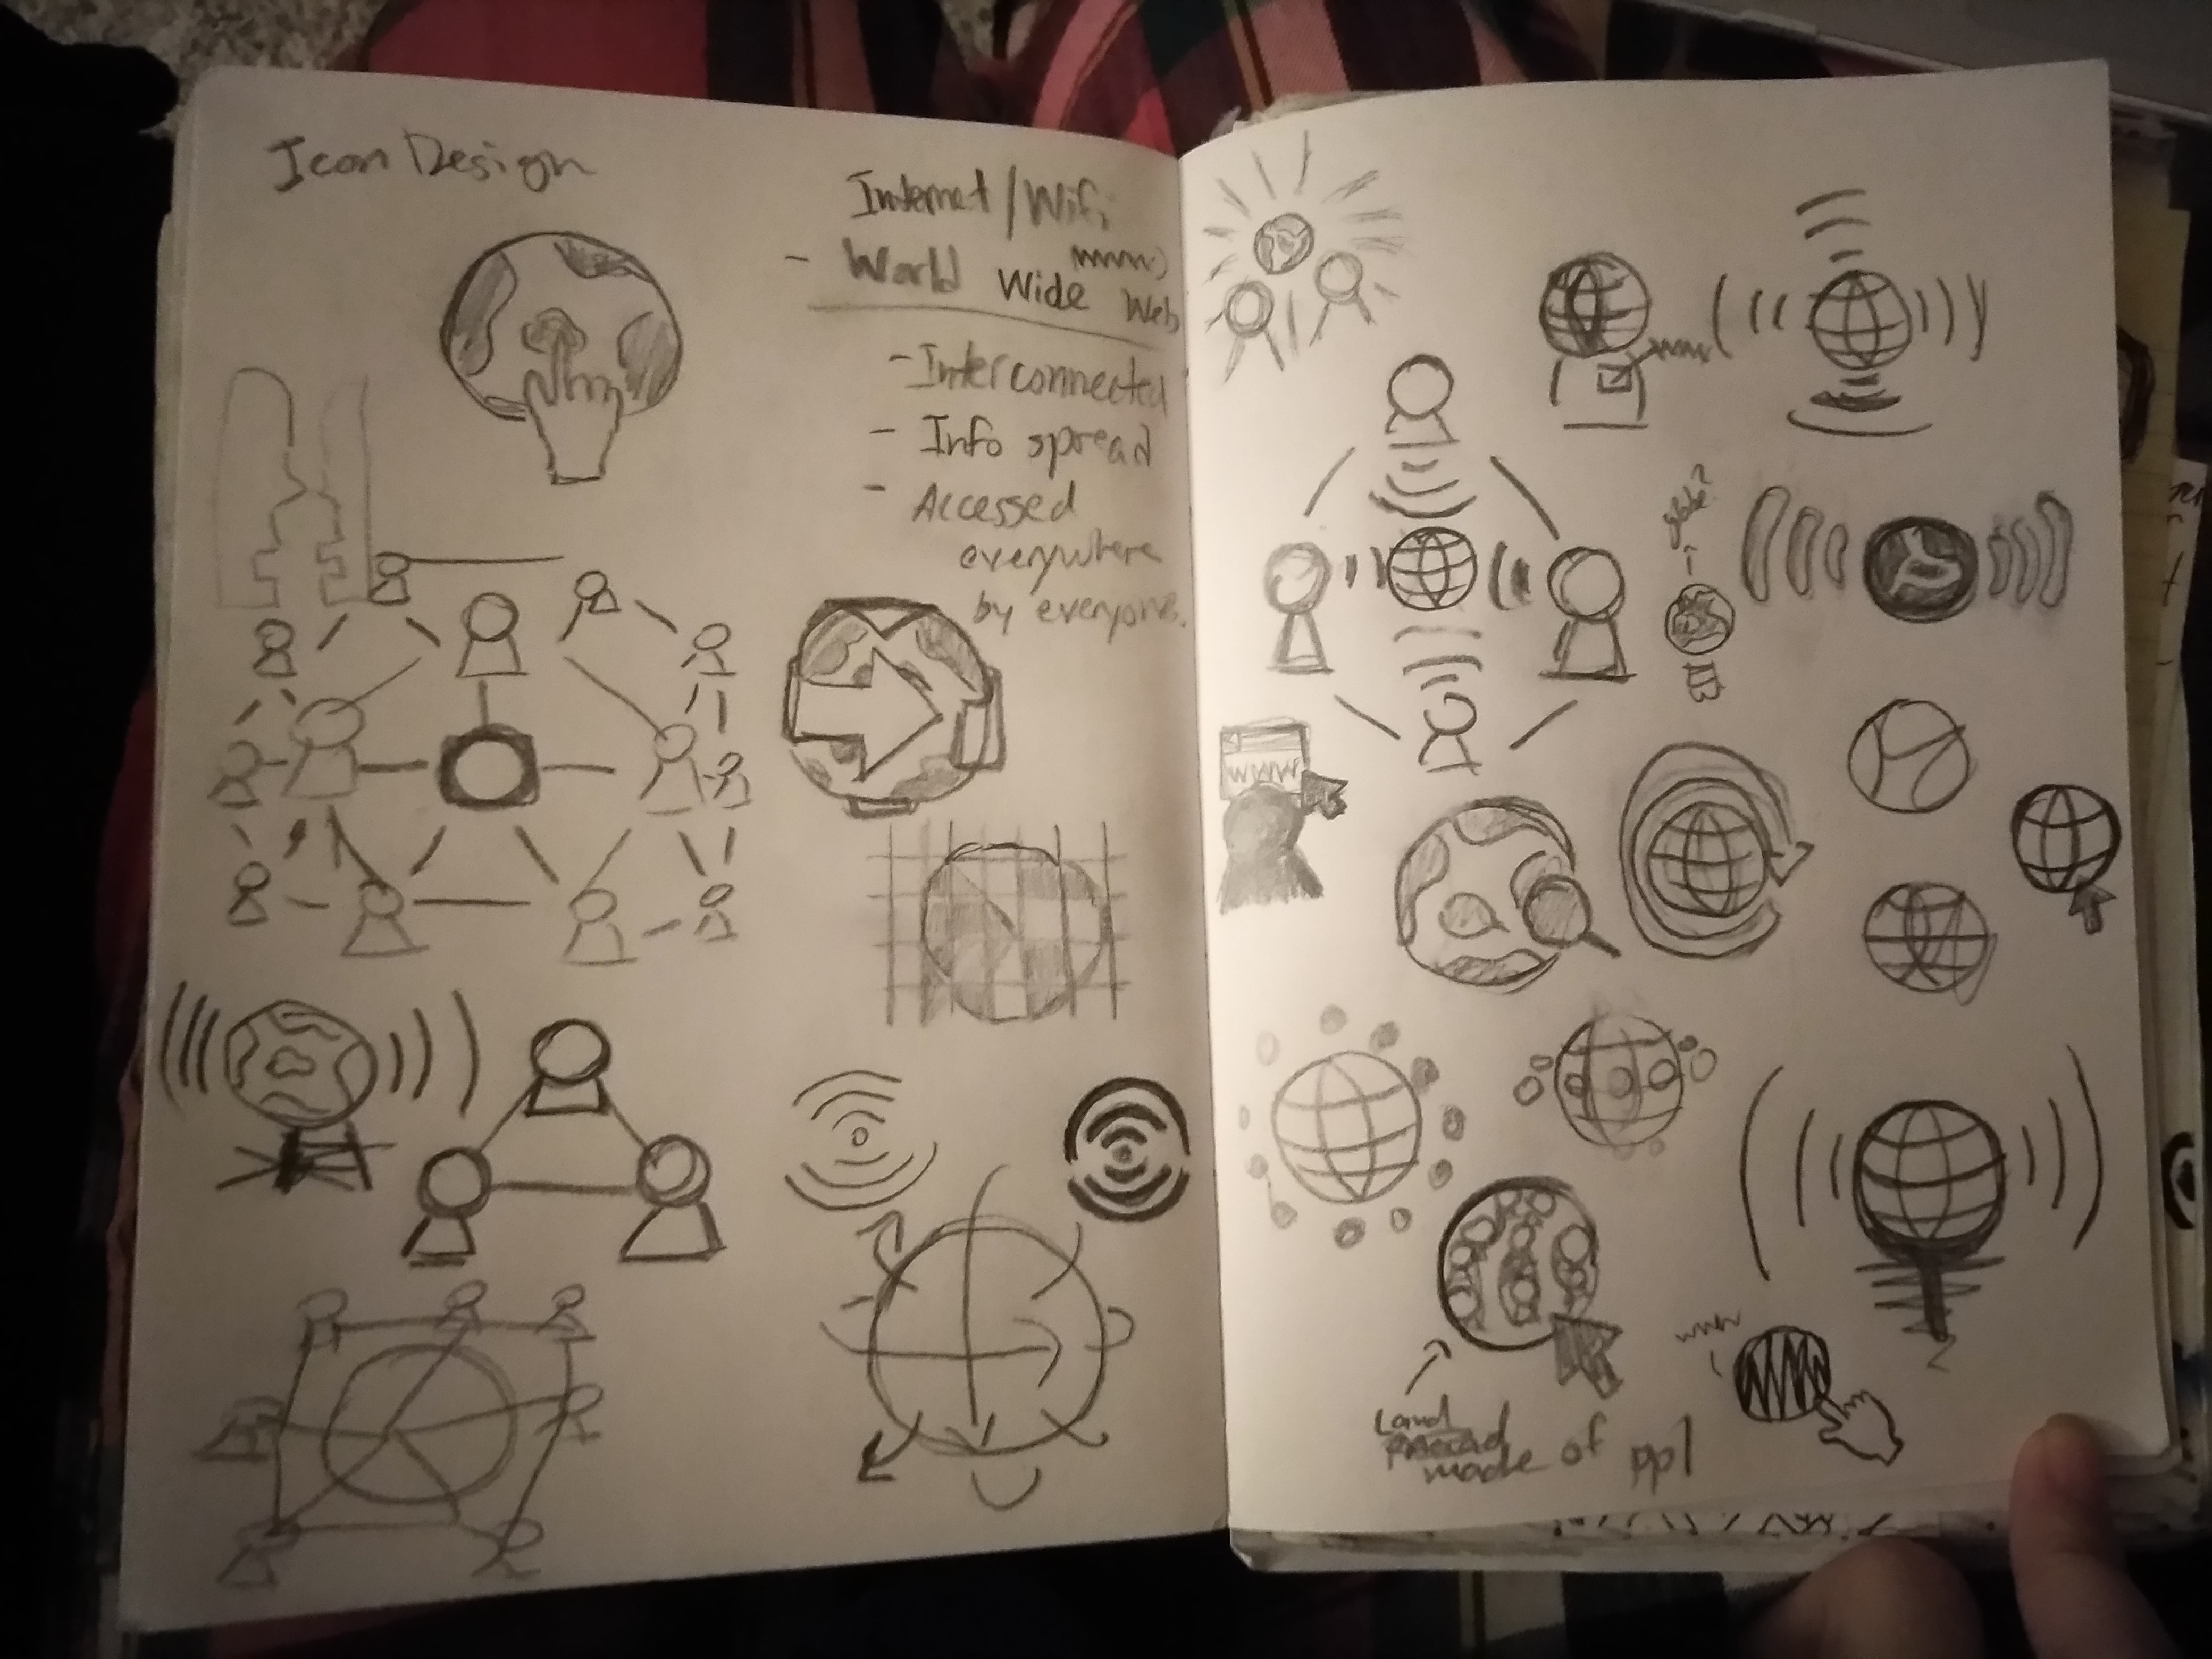 Icon Design
Internet/Wifi
- World Wide Web
www
- Interconnected
- Info spread
- Accessed
everywhere
by everyone.
www
globe?
WWW
www
Land
made of ppl